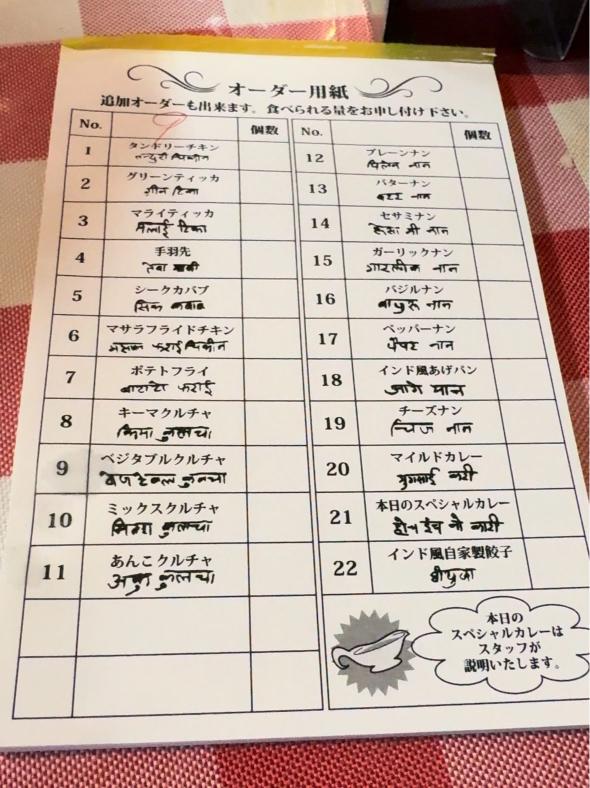 オーダー用紙
追加オーダーも出来ます。食べられる量をお申し付け下さい。
No.
個数
1
タンドリーチキン
तन्दुरी चिकीन
2
グリーンティッカ
ग्रीन टिका
3
マライティッカ
मलाई टिका
4
手羽先
तेबा साकी
5
シークカバブ
सिक कबाब
6
マサラフライドチキン
मसाला फराई चिकीन
7
ポテトフライ
बाटाटो फराई
8
キーマクルチャ
किमा कुलचा
9
ベジタブルクルチャ
वेजटेबल कुलचा
10
ミックスクルチャ
मिक्स कुलचा
11
あんこクルチャ
अन्को कुलचा
No.
個数
12
プレーンナン
पिलेन नान
13
バターナン
बटर नान
14
セサミナン
सेसामी नान
15
ガーリックナン
गारलीक नान
16
バジルナン
बाजुरु नान
17
ペッパーナン
पेपर नान
18
インド風あげパン
आगे पान
19
チーズナン
चिज नान
20
マイルドカレー
मुगलाई करी
21
本日のスペシャルカレー
22
インド風自家製餃子
本日の
スペシャルカレーは
スタッフが
説明いたします。